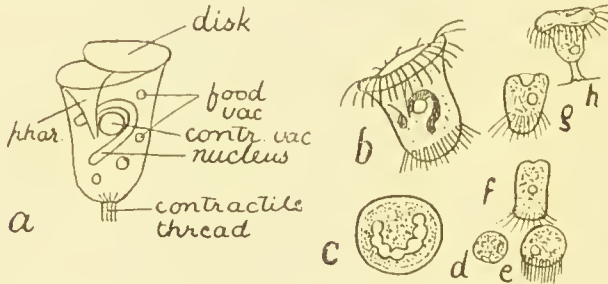 disk
food
vac
phar.
contr. vac
nucleus
contractile
thread
a
b
c
d
e
f
g
h